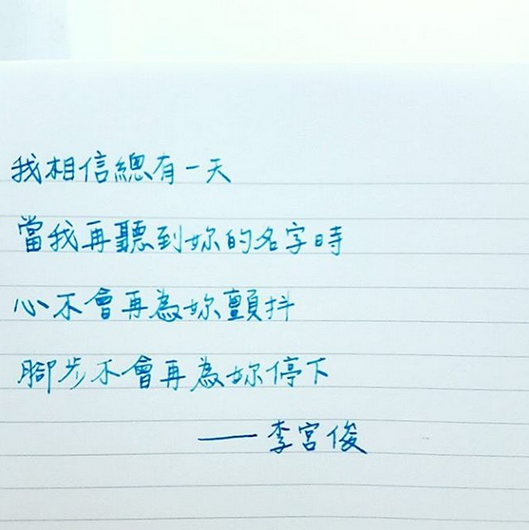 我相信總有一天
當我再聽到妳的名字時
心不會再為妳顫抖
腳步不會再為妳停下
——李宮俊